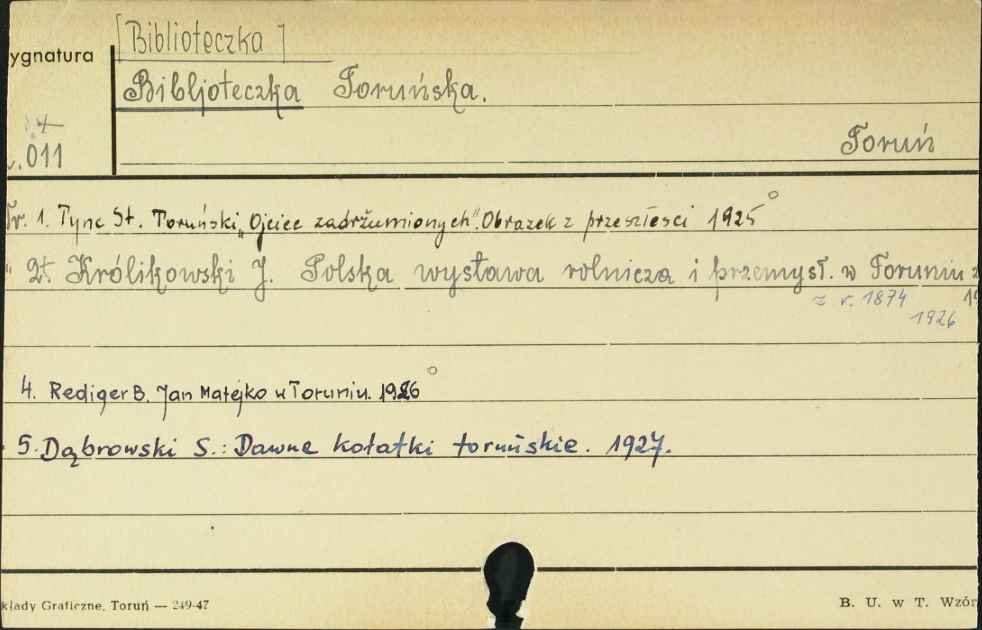 [Biblioteczka]
ygnatura
Bibljoteczka Toruńska.
.011
Toruń
Nr. 1. Tync St. Toruński „Ojciec zadżumionych". Obrazek z przeszłości 1925
" 2. Królikowski J. Polska wystawa rolnicza i przemysł. w Toruniu z
z r. 1874
1926
4. Rediger B. Jan Matejko w Toruniu. 1926
5. Dąbrowski S.: Dawne kołatki toruńskie. 1927.
kłady Graficzne, Toruń — 249-47
B. U. w T. Wzór